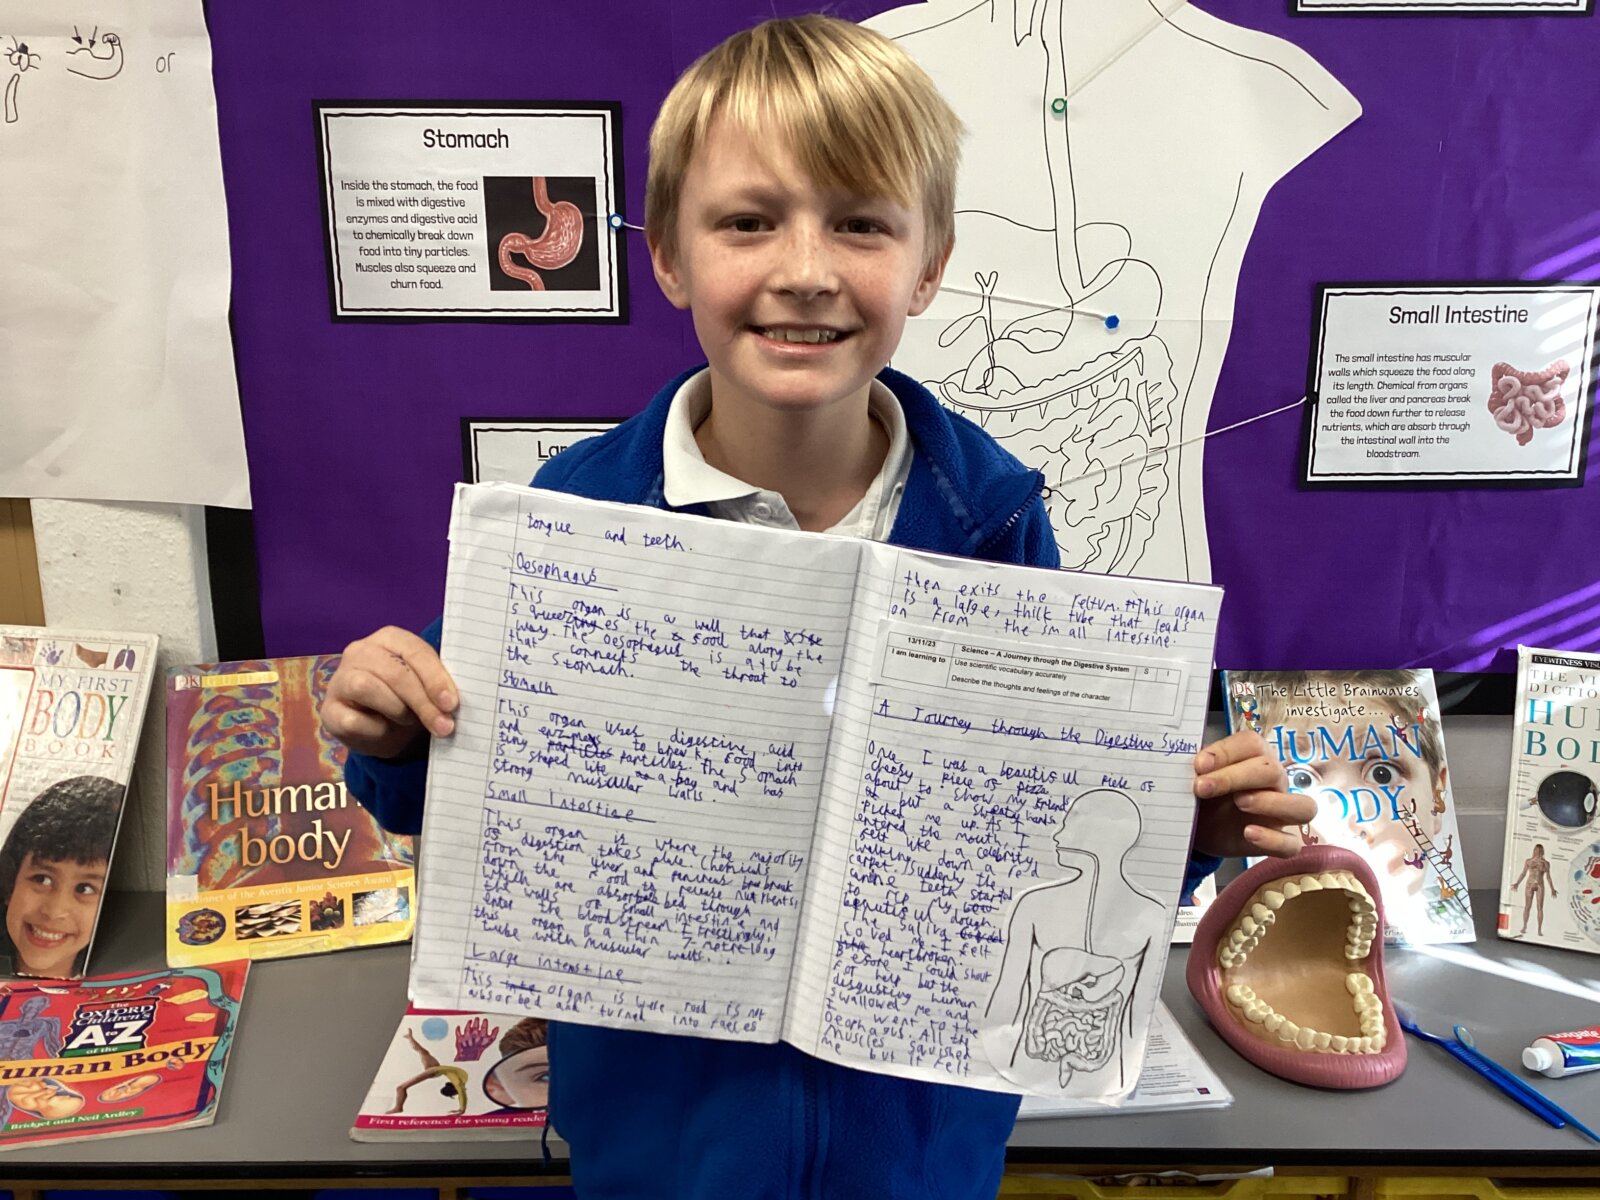 or
Stomach
Inside the stomach, the food
is mixed with digestive
enzymes and digestive acid
to chemically break down
food into tiny particles.
Muscles also squeeze and
churn food.
Small Intestine
The small intestine has muscular
walls which squeeze the food along
its length. Chemical from organs
called the liver and pancreas break
the food down further to release
nutrients, which are absorb through
the intestinal wall into the
bloodstream.
tongue and teeth.
Oesophagus
This organ is a wall that
squeezes the food along the
way. The oesophagus is a tube
that connects the throat to
the stomach.
Stomach
This organ uses digestive acid
and enzymes to break food into
tiny particles particles. The stomach
is shaped like a bag and has
strong muscular walls.
Small intestine
This organ is where the majority
of digestion takes place. Chemicals
from the liver and pancreas break
down the food to release nutrients,
which are absorbed through
the walls of small intestine and
enter the bloodstream. Intrestingly,
this organ is a thin 7-metre-long
tube with muscular walls.
Large intenstine
This organ is were food is not
absorbed and turned into faeces
then exits the rectum. This organ
is a large, thick tube that leads
on from the small intestine.
13/11/23 Science – A Journey through the Digestive System S I
I am learning to Use scientific vocabulary accurately
Describe the thoughts and feelings of the character
A Journey through the Digestive System
Once I was a beautiful piece of
cheesy piece of pizza
about to show my friends
but a sweaty hands
picked me up. As I
entered the mouth, I
felt like a celebrity
walking down a red
carpet. Suddenly the
canine teeth started
to rip my
beautiful dough.
The saliva
coved me. I felt
heartbroken.
Before I could shout
for help but the
disgusting human
swallowed me and
I went to the
Oeophagus. All the
muscles squished
me but it felt
MY FIRST
BODY
BOOK
DK
Human
body
Winner of the Aventis Junior Science Award
The
OXFORD
Children's
A to Z
of the
Human Body
Bridget and Neil Ardley
First reference for young reade
DK The Little Brainwaves
investigate...
HUMAN
BODY
EYEWITNESS VISU
THE VI
DICTION
HU
BOD
Colgate